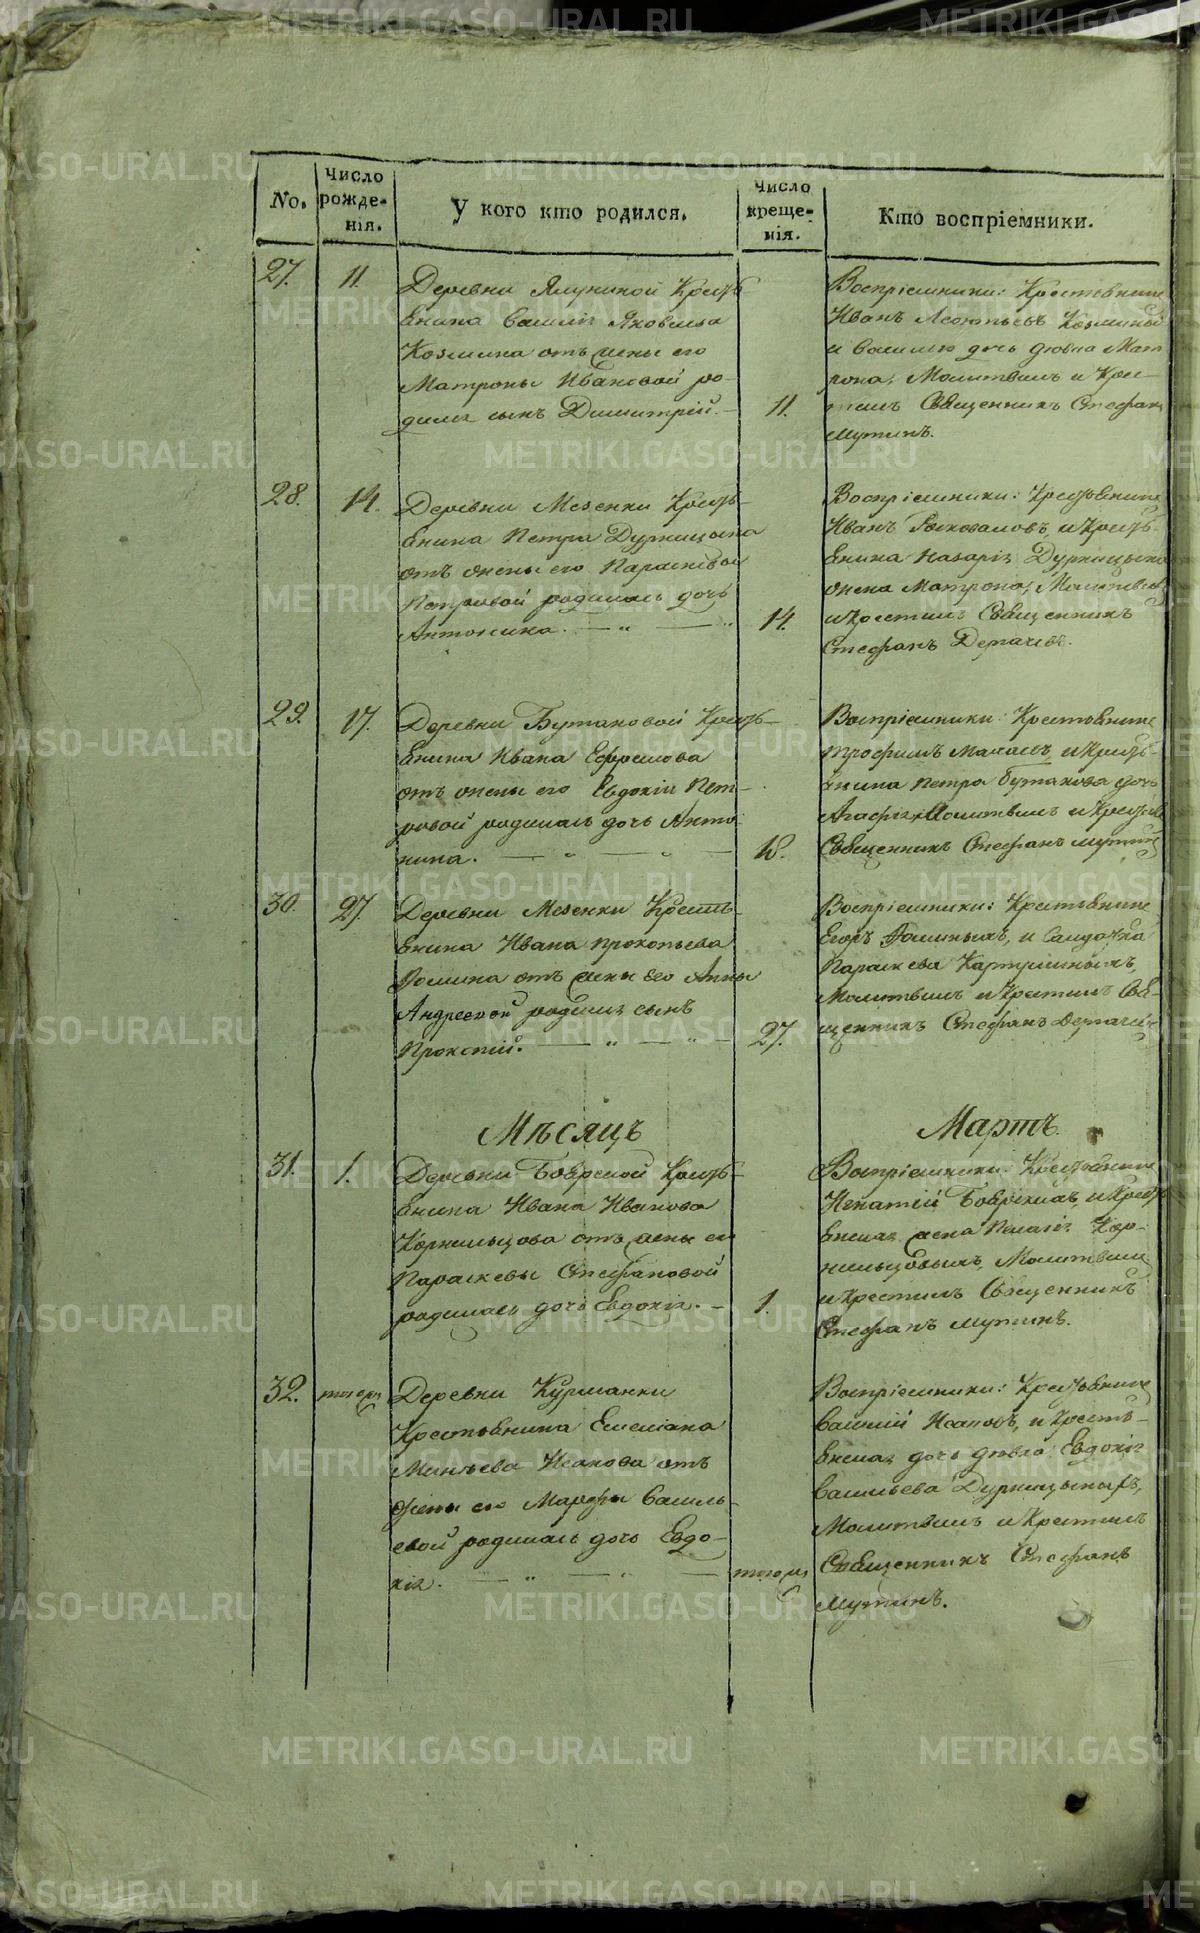 No.
Число рожде-нія.
У кого кто родился.
Число креще-нія.
Кто воспріемники.
27.
11.
Деревни Ялуниной Кресть
янина Василія Яковлева
Козмина отъ жены его
Матроны Ивановой ро-
дился сынъ Димитрій.
11.
Воспріемники: Крестьянинъ
Иванъ Леонтьевъ Козминой
и Василью дочь девка Мат
рона, Молитвилъ и Крес-
тилъ Священникъ Стефанъ
Мутинъ.
28.
14.
Деревни Мезенки Кресть-
янина Петра Дурницына
отъ жены его Параскевы
Петровой родилась дочь
Антонина.
14.
Воспріемники: Крестьянинъ
Иванъ и Кресть-
янина Назарія Дурницына
жена Матрона, Молитвилъ
и Крестилъ Священникъ
Стефанъ Дерпачевъ.
29.
17.
Деревни Бутаковой Кресть-
янина Ивана Ефремова
отъ жены его Евдокіи Пет-
ровой родилась дочь Анто-
нина.
18.
Воспріемники: Крестьянинъ
Трофимъ и Кресть-
янина Петра Бутакова дочь
Агафія, Молитвилъ и Крестилъ
Священникъ Стефанъ Мутинъ
30.
27.
Деревни Мезенки Кресть-
янина Ивана Прокопьева
Фомина отъ жены его Анны
Андреевой родился сынъ
27.
Воспріемники: Крестьянинъ
Егоръ Фоминыхъ, и Солдатка
Параскева
Молитвилъ и Крестилъ Свя-
щенникъ Стефанъ Дерпачевъ
Мѣсяцъ
Мартъ.
31.
1.
Деревни Боярской Кресть-
янина Ивана Иванова
Корнильцова отъ жены его
Параскевы Стефановой
родилась дочь Евдокія.
1.
Воспріемники: Крестьянинъ
Игнатій Боярскихъ, и Кресть
янская жена Пелагія Кор-
нильцовыхъ, Молитвилъ
и Крестилъ Священникъ
Стефанъ Мутинъ.
32.
тогожъ
Деревни Курманки
Крестьянина Емеліана
Исакова отъ
жены его Марфы Василь-
евой родилась дочь Евдо-
кія.
тогожъ
Воспріемники: Крестьянинъ
Василій Исаковъ, и Кресть-
янская дочь девка Евдокія
Васильева Дурницыныхъ,
Молитвилъ и Крестилъ
Священникъ Стефанъ
Мутинъ.
METRIKI.GASO-URAL.RU